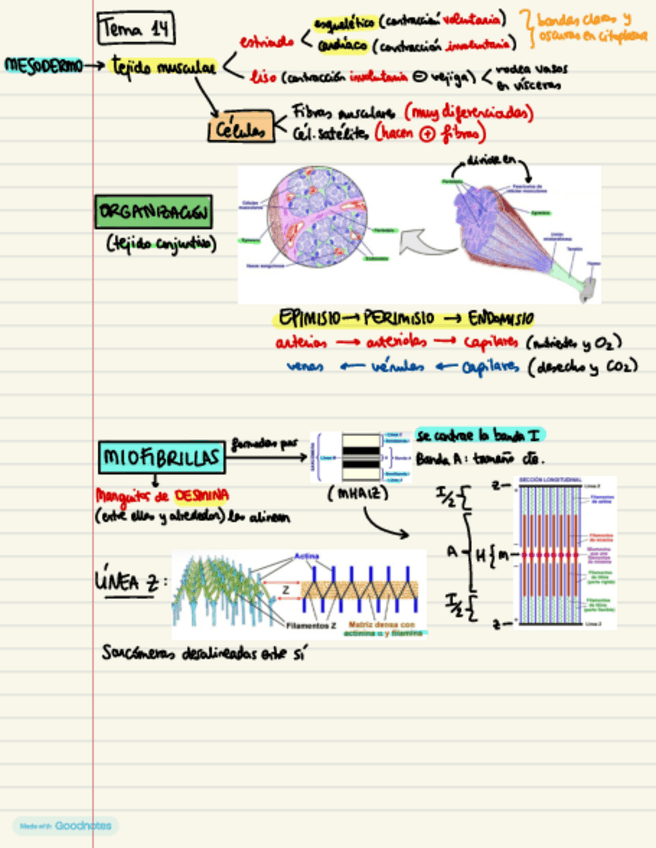 Tema 14
esquelético (contracción voluntaria)
cardiaco (contracción involuntaria)
bandas claras y
oscuras en citoplasma
estriado
MESODERMO → tejido muscular
liso (contracción involuntaria ⊖ vejiga)
rodea vasos
en vísceras
Células
Fibras musculares (muy diferenciadas)
Cél. satélites (hacen ⊕ fibras)
ORGANIZACIÓN
(tejido conjuntivo)
divide en
Células
musculares
Perimisio
Epimisio
Endomisio
Vasos sanguíneos
Perimisio
Fascículos de
células musculares
Epimisio
Unión
Tendón
Hueso
EPIMISIO → PERIMISIO → ENDOMISIO
arterias → arteriolas → capilares (nutrientes y O2)
venas ← vénulas ← capilares (desecho y CO2)
MIOFIBRILLAS
formadas por
SARCÓMERO
Línea Z
Línea M
H
Banda A
Línea Z
se contrae la banda I
Banda A: tamaño cte.
(MHAIZ)
Manguitos de DESMINA
(entre ellas y alrededor) las alinean
SECCIÓN LONGITUDINAL
Z
Línea Z
I/2
Filamentos
de actina
A
H
M
Filamentos
de miosina
Filamentos
de titina
(parte rígida)
I/2
Filamentos
de titina
(parte flexible)
Z
Línea Z
LÍNEA Z:
Actina
Z
Filamentos Z
Matriz densa con
actinina α y filamina
Sarcómeras desalineadas entre sí
Made with Goodnotes